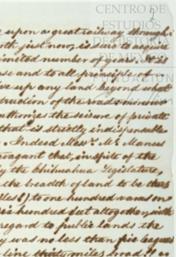 CENTRO DE
ESTUDIOS
DE
e upon a great railway through
oth just now, is sure to acquire
limited number of years. It is
se and to all principle of
ve up any land beyond what
truction of the road
authorize the seizure of private
that is strictly indispensable
. Indeed Messrs. McManus
ragant that, in spite of the
by the Chihuahua Legislature,
the breadth of land to be
to one hundred varas on
hundred feet altogether, in
regard to public lands the
y was no less than five leagues
line thirty miles broad, as